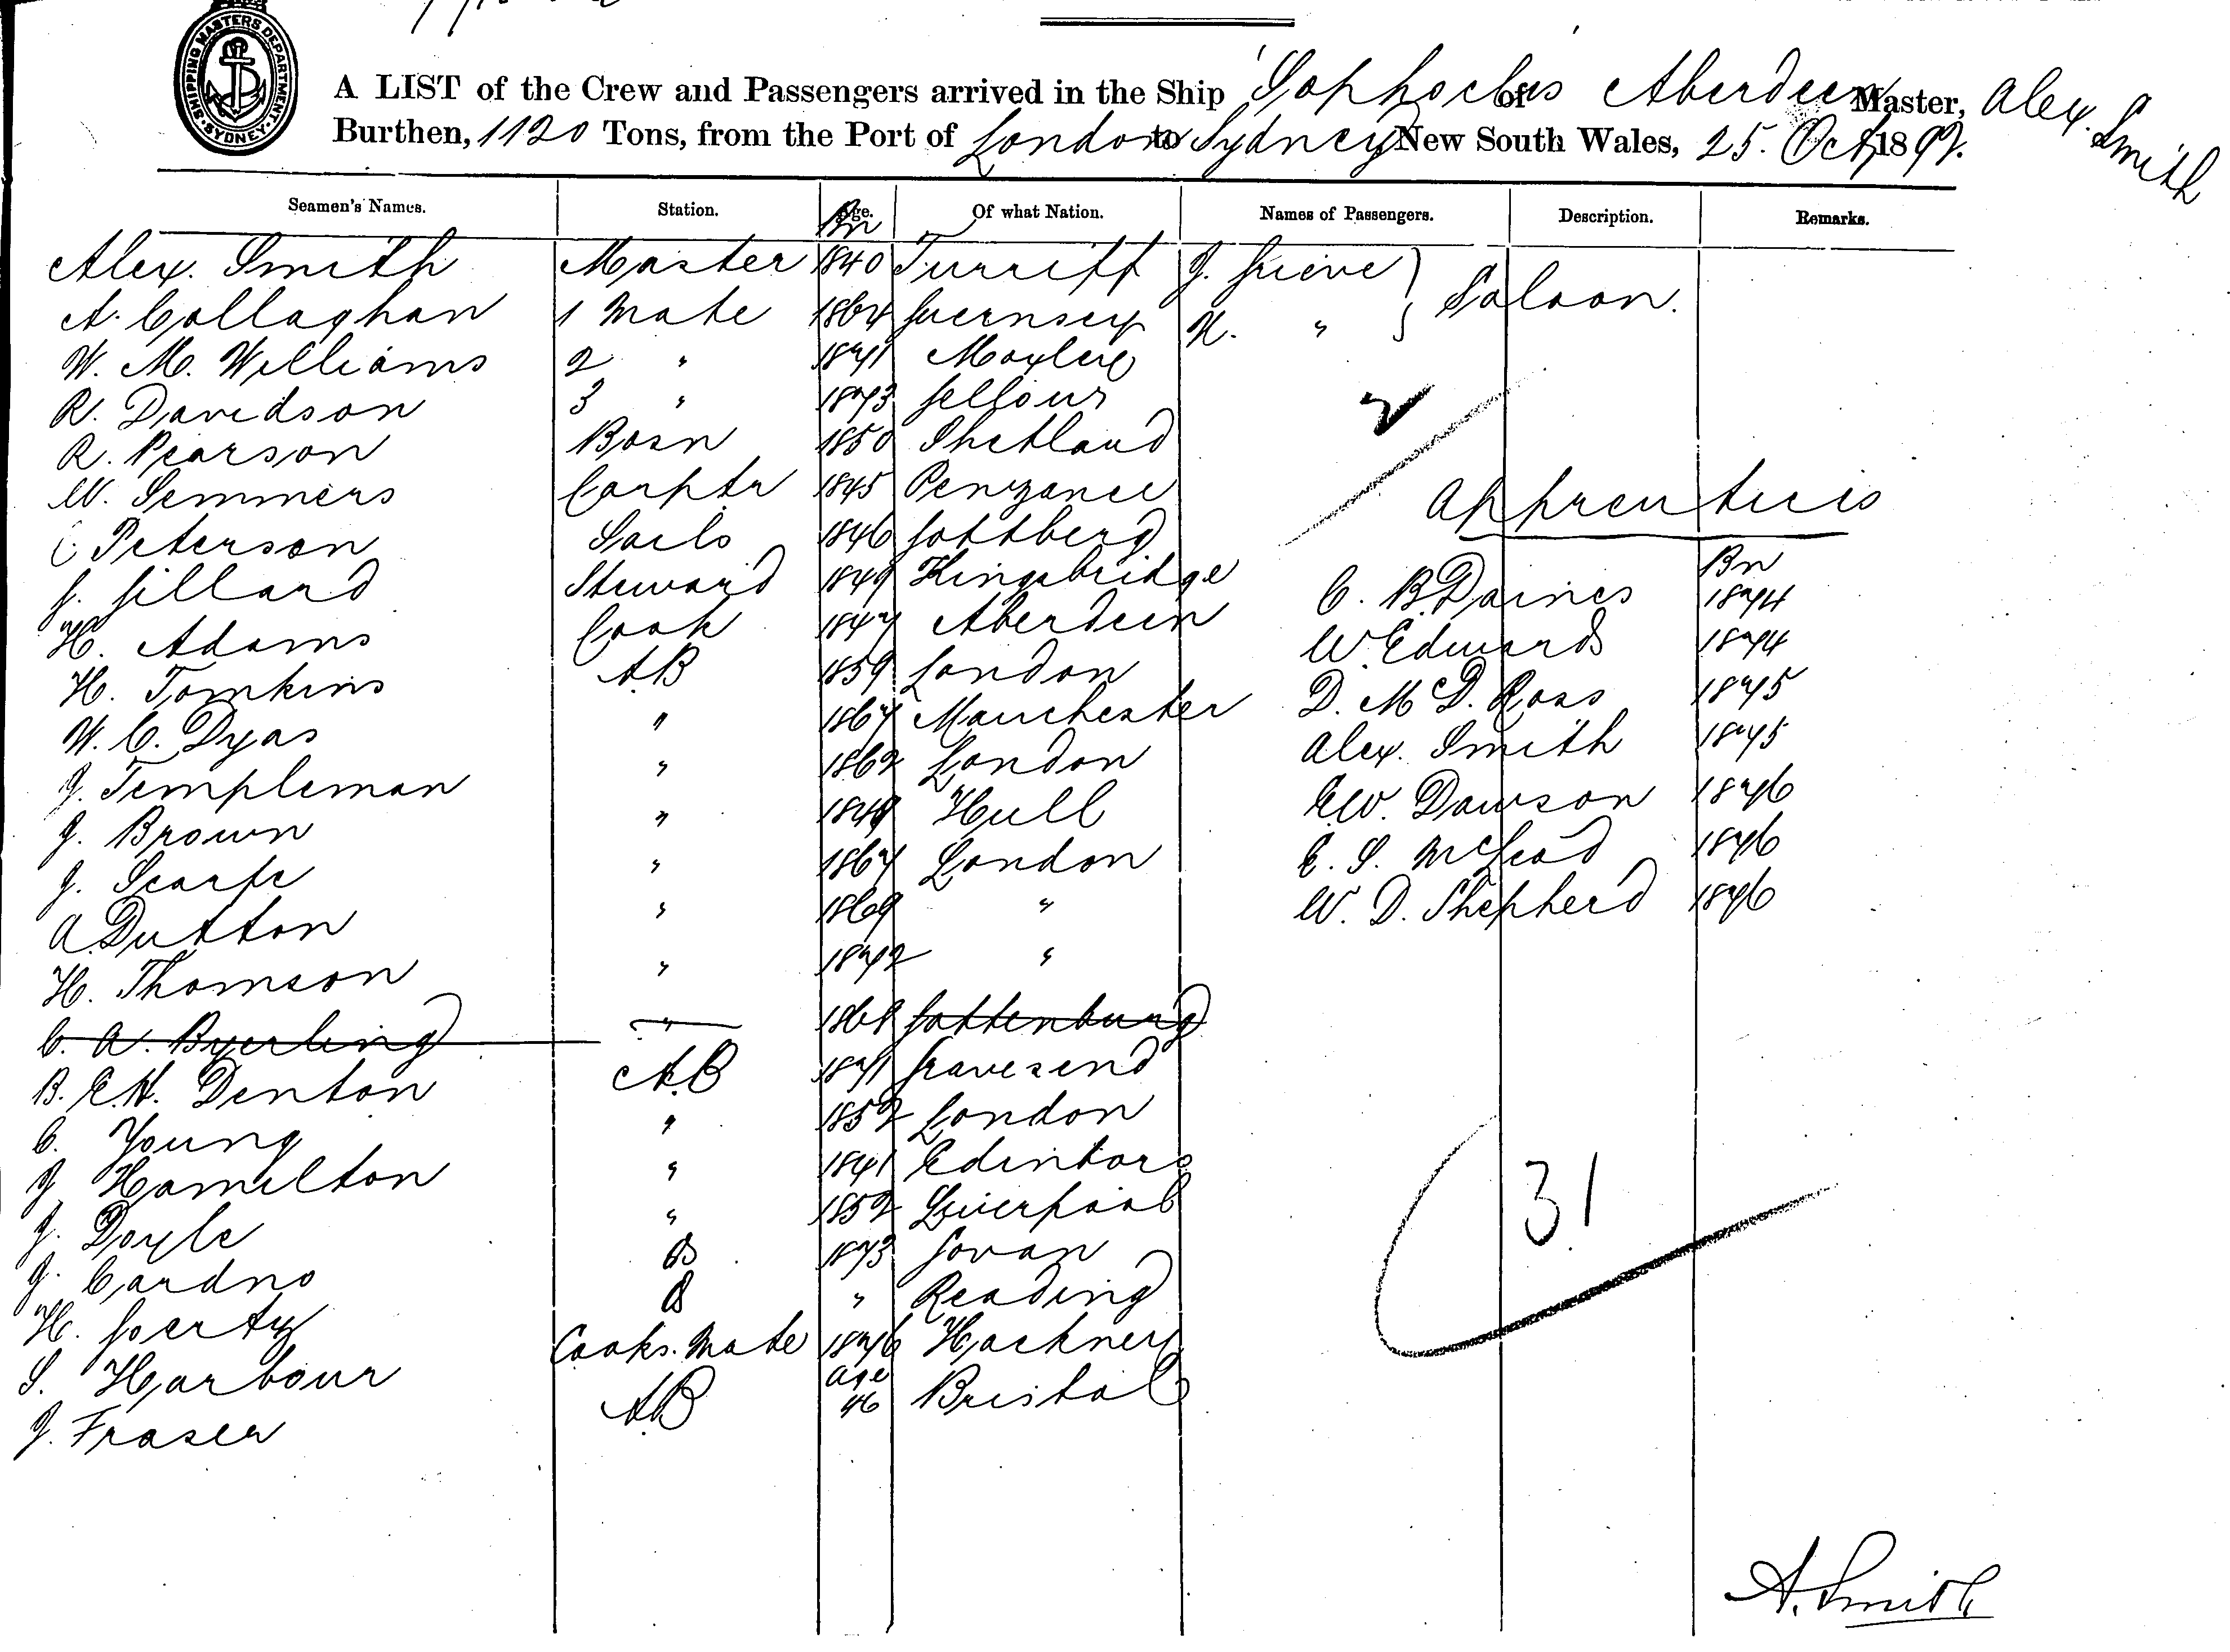 SHIPPING MASTERS DEPARTMENT
SYDNEY
A LIST of the Crew and Passengers arrived in the Ship "Sophocles" of Aberdeen Master, Alex. Smith
Burthen, 1120 Tons, from the Port of London to Sydney New South Wales, 25. Oct 1892.
Seamen's Names. Station. Age. Bn Of what Nation. Names of Passengers. Description. Remarks.
Alex. Smith Master 1840 Turriff J. Grieve } Saloon.
A. Callaghan 1 Mate 1864 Guernsey K. "
W. M. Williams 2 " 1871
R. Davidson 3 " 1873
R. Pearson Bosn 1850 Shetland
W. Semmens Carptr 1845 Penzance
Peterson Sails 1846 Gottberg
G. Gillard Steward 1849 Kingsbridge
H. Adams Cook 1847 Aberdeen
H. Tomkins AB 1859 London
W. C. Dyas " 1867 Manchester
J. Templeman " 1862 London
J. Brown " Hull
J. Scarfe " 1867 London
A. Dutton " 1869 "
H. Thomson " 1872 "
C. A. Byerling " 1868 Gottenburg
B. E. H. Denton AB 1871 Gravesend
C. Young " 1852 London
J Hamilton " 1841 Edinboro
J. Doyle " 1852 Liverpool
J. Cardno OS 1873 Govan
H. Goerty OS " Reading
S. Harbour Cooks. Mate 1876 Hackney
J. Fraser AB age 46 Bristol
2
Apprentices
Bn
C. B. Daines 1874
W. Edwards 1874
D. M D. Ross 1875
Alex. Smith 1875
E. W. Dawson 1876
E. S. McLeod 1876
W. D. Shepherd 1876
31
A. Smith